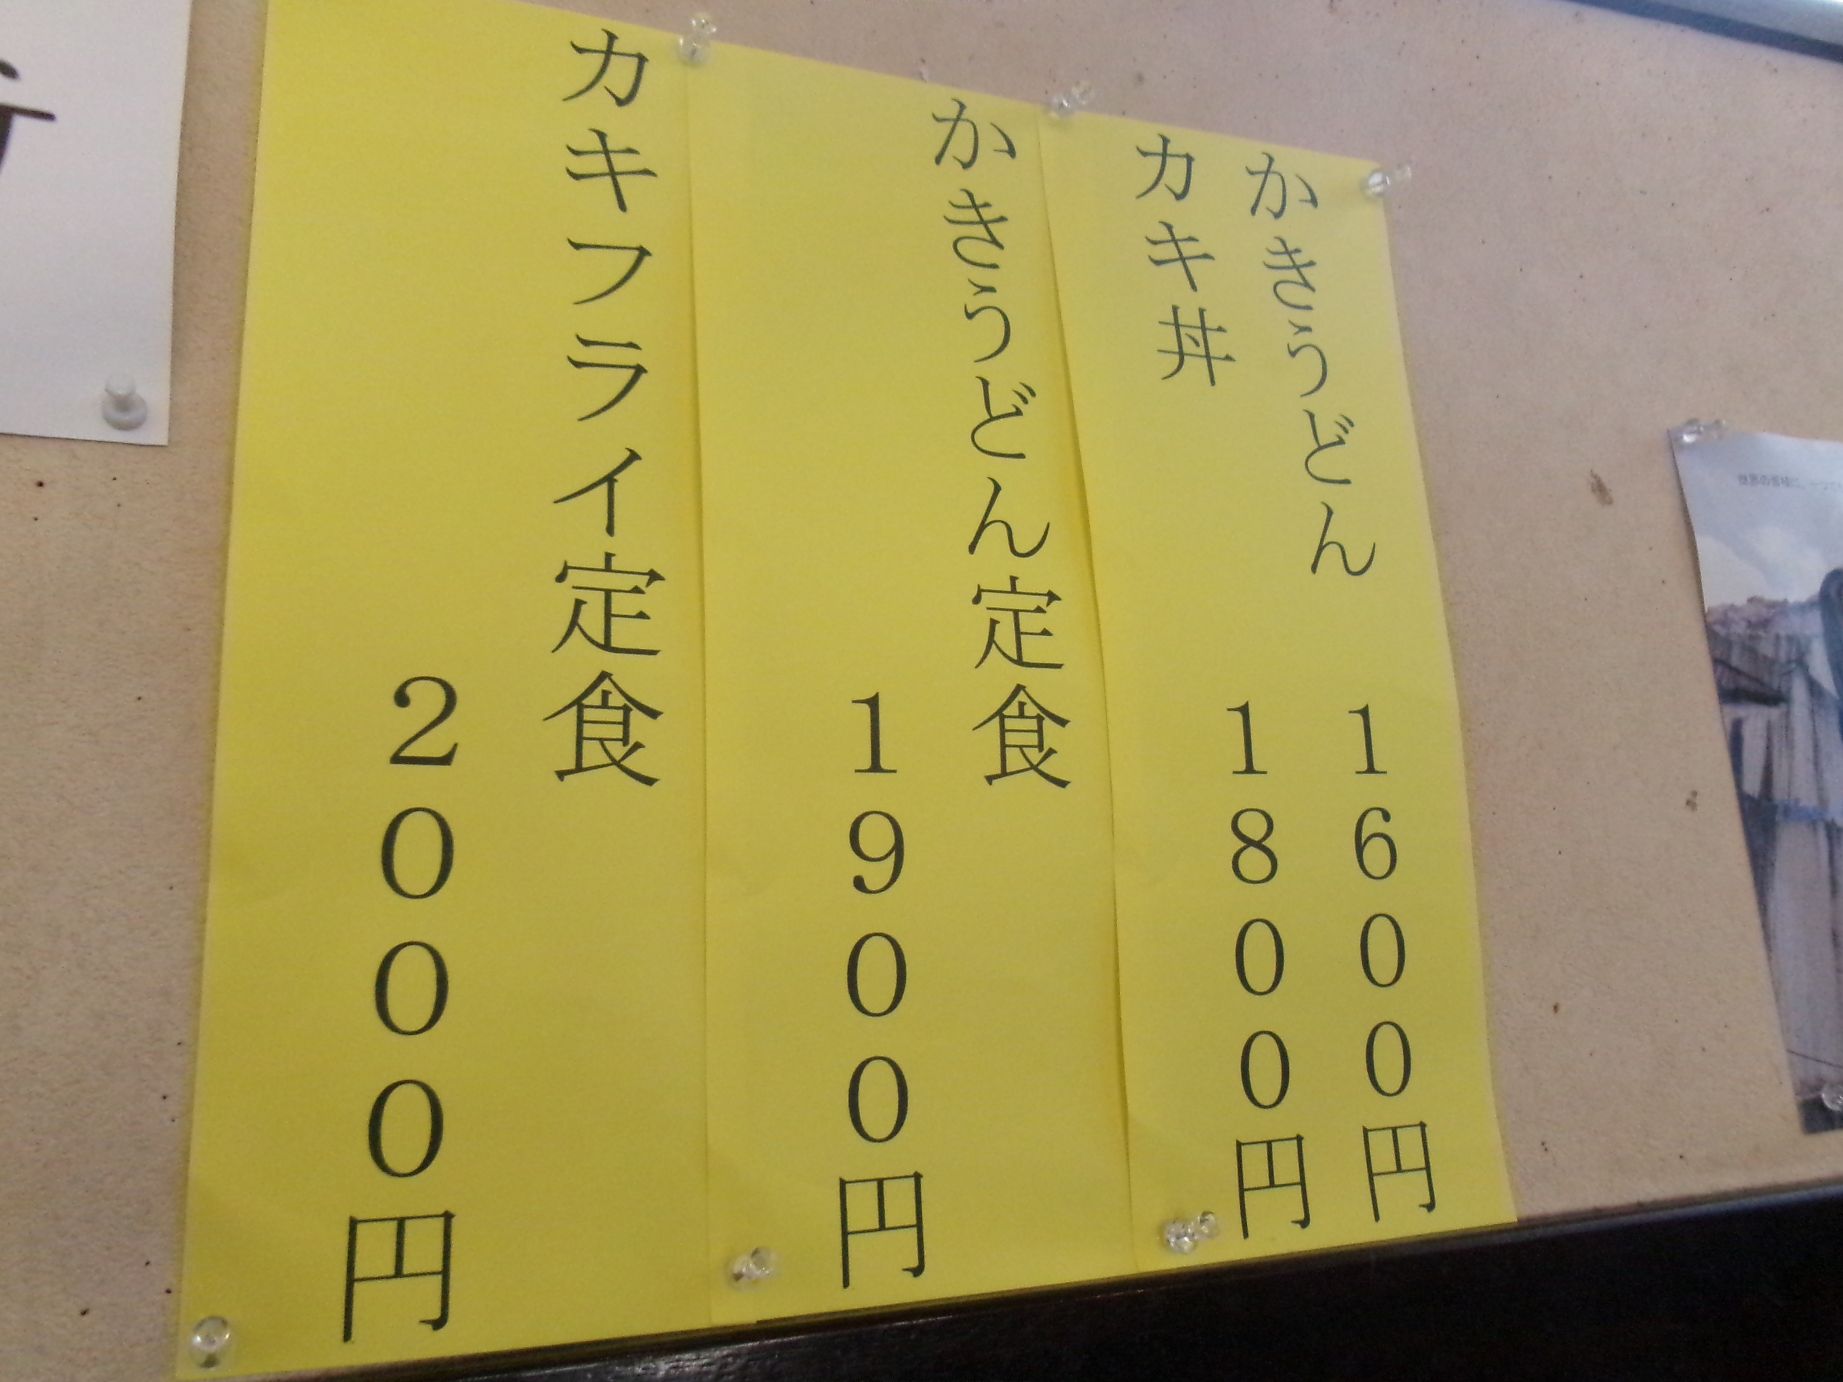 かきうどん 1600円
カキ丼 1800円
かきうどん定食
1900円
カキフライ定食
2000円